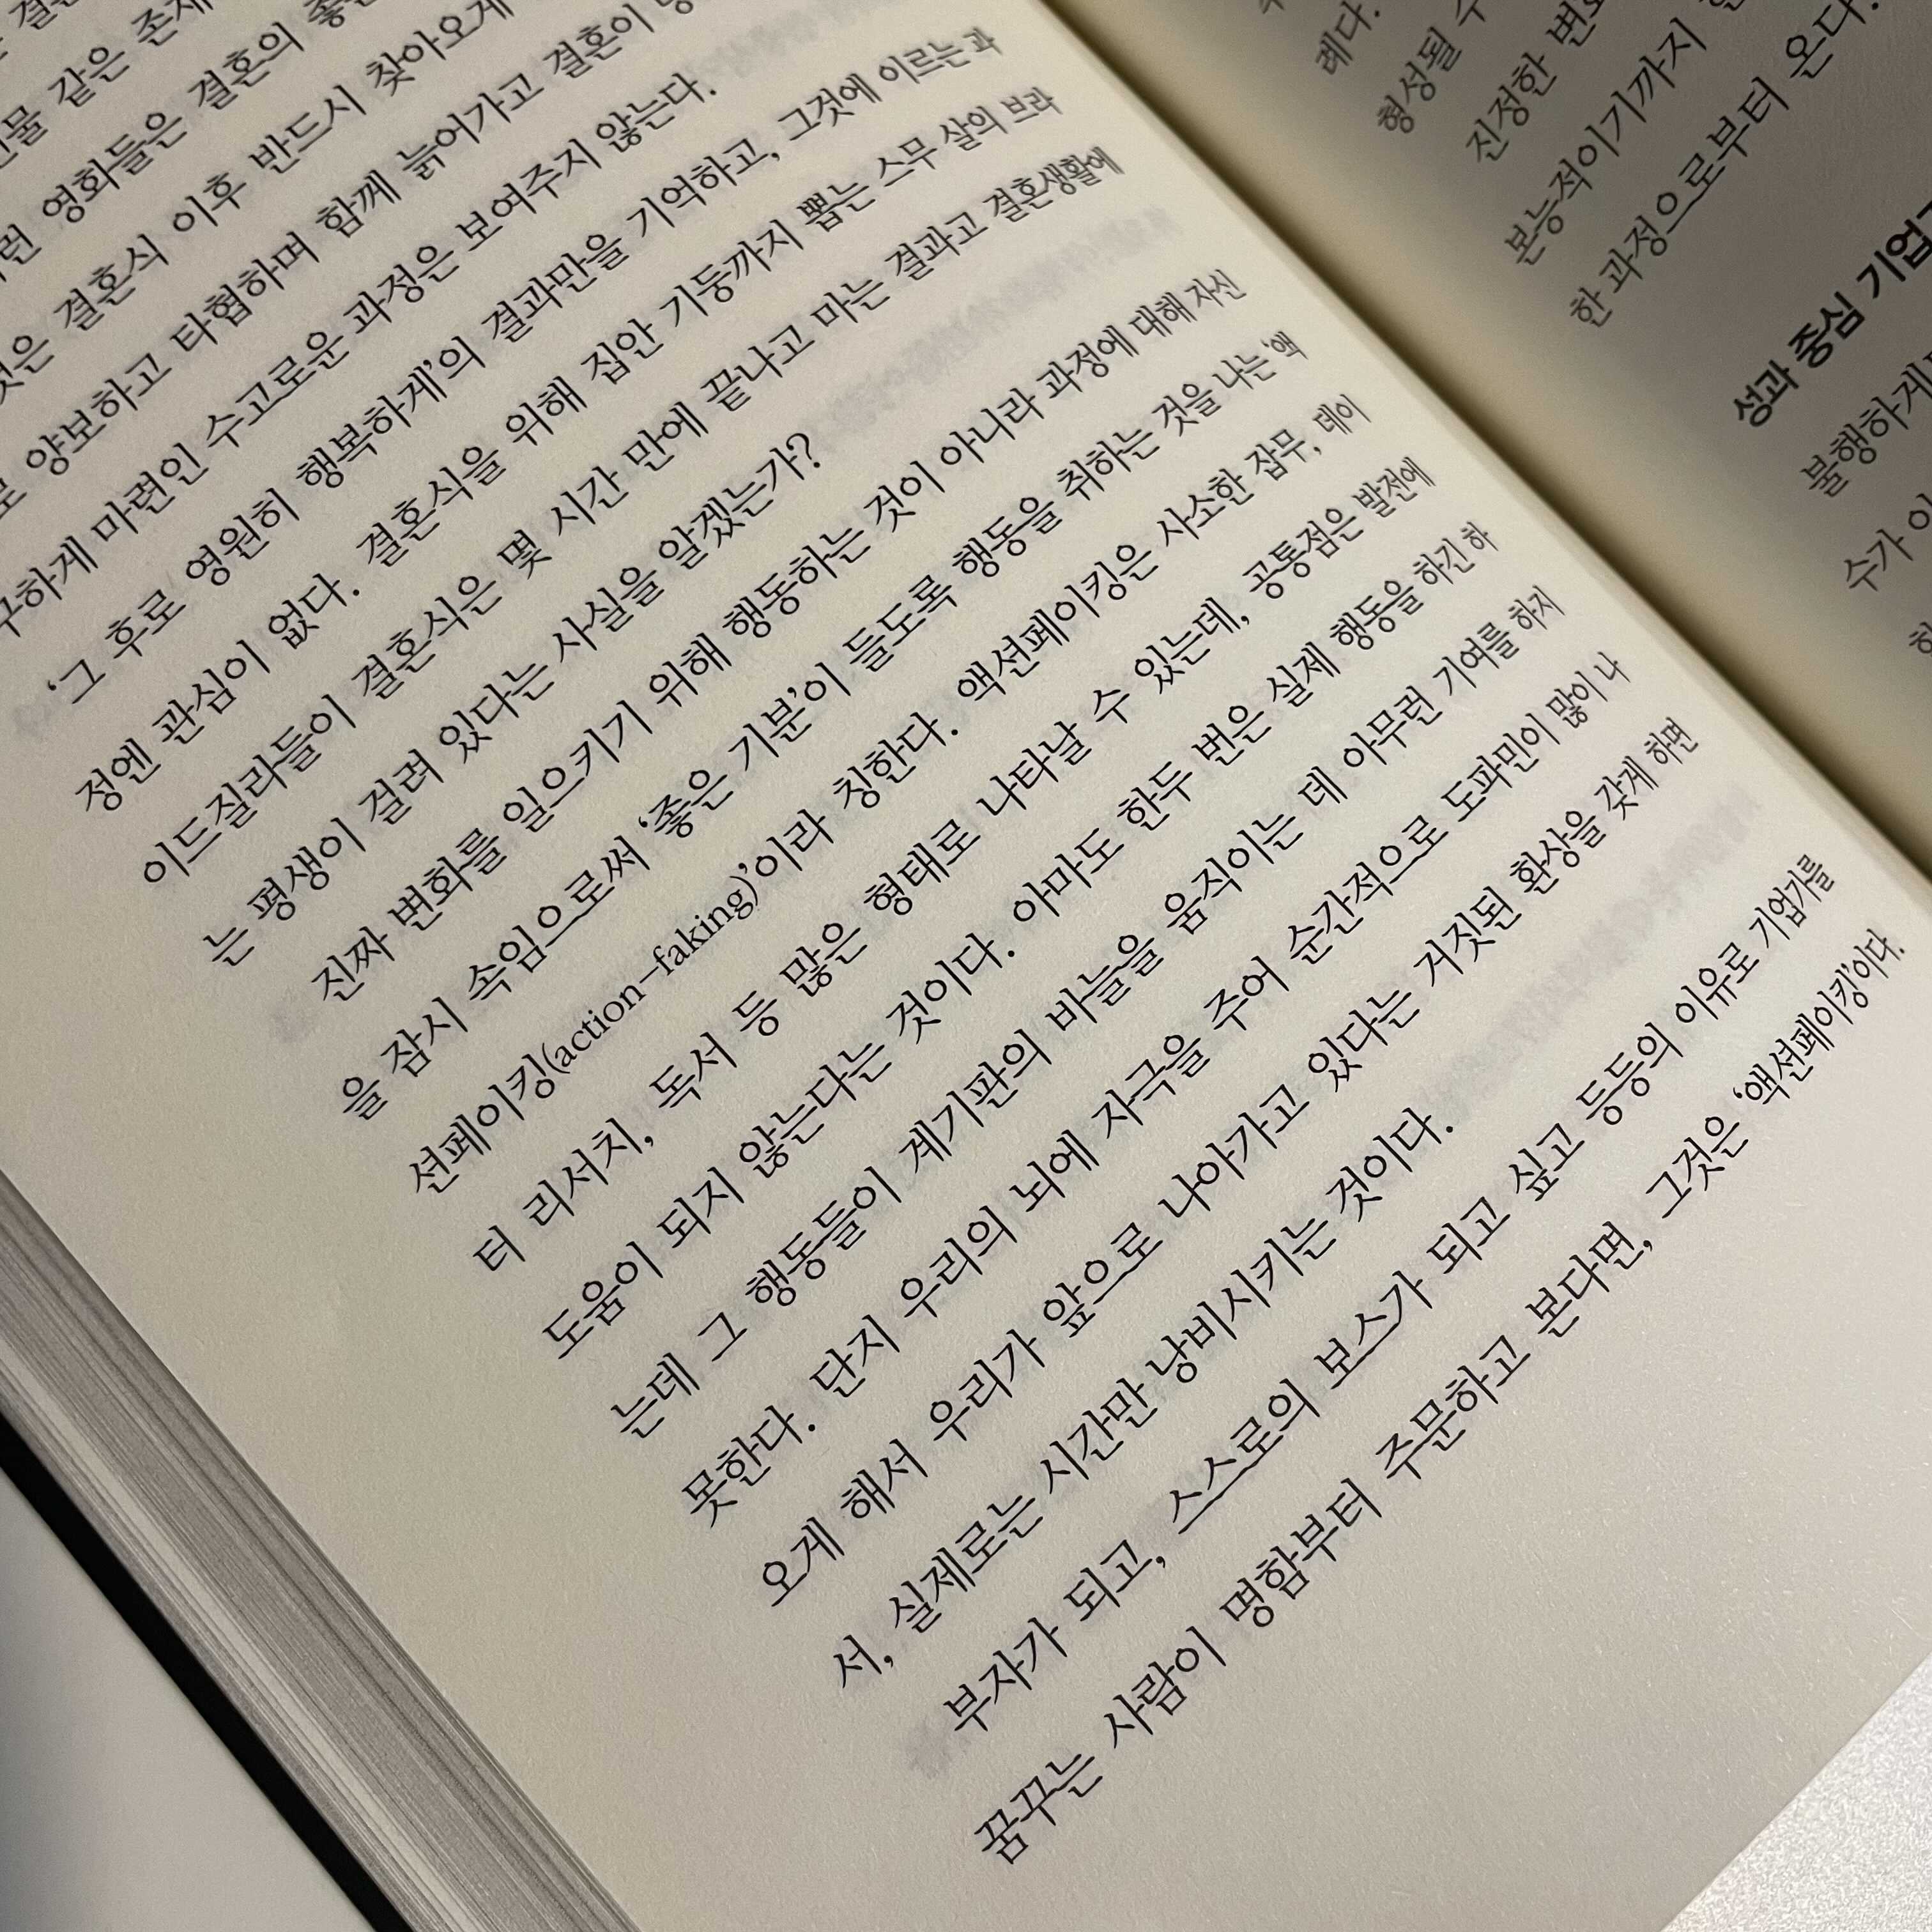 같은 존재
영화들은 결혼의 좋은
것은 결혼식 이후 반드시 찾아오게
양보하고 타협하며 함께 늙어가고 결혼이
구하게 마련인 수고로운 과정은 보여주지 않는다.
‘그 후로 영원히 행복하게’의 결과만을 기억하고, 그것에 이르는 과
정엔 관심이 없다. 결혼식을 위해 집안 기둥까지 뽑는 스무 살의 브라
이드질라들이 결혼식은 몇 시간 만에 끝나고 마는 결과고 결혼생활에
는 평생이 걸려 있다는 사실을 알겠는가?
진짜 변화를 일으키기 위해 행동하는 것이 아니라 과정에 대해 자신
을 잠시 속임으로써 ‘좋은 기분’이 들도록 행동을 취하는 것을 나는 ‘액
션페이킹(action-faking)’이라 칭한다. 액션페이킹은 사소한 잡무, 데이
터 리서치, 독서 등 많은 형태로 나타날 수 있는데, 공통점은 발전에
도움이 되지 않는다는 것이다. 아마도 한두 번은 실제 행동을 하긴 하
는데 그 행동들이 계기판의 바늘을 움직이는 데 아무런 기여를 하지
못한다. 단지 우리의 뇌에 자극을 주어 순간적으로 도파민이 많이 나
오게 해서 우리가 앞으로 나아가고 있다는 거짓된 환상을 갖게 하면
서, 실제로는 시간만 낭비시키는 것이다.
부자가 되고, 스스로의 보스가 되고 싶고 등등의 이유로 기업가를
꿈꾸는 사람이 명함부터 주문하고 본다면, 그것은 ‘액션페이킹’이다.
례다.
형성될 수
진정한 변화
본능적이기까지
한 과정으로부터 온다.
성과 중심 기업
불행하게
수가